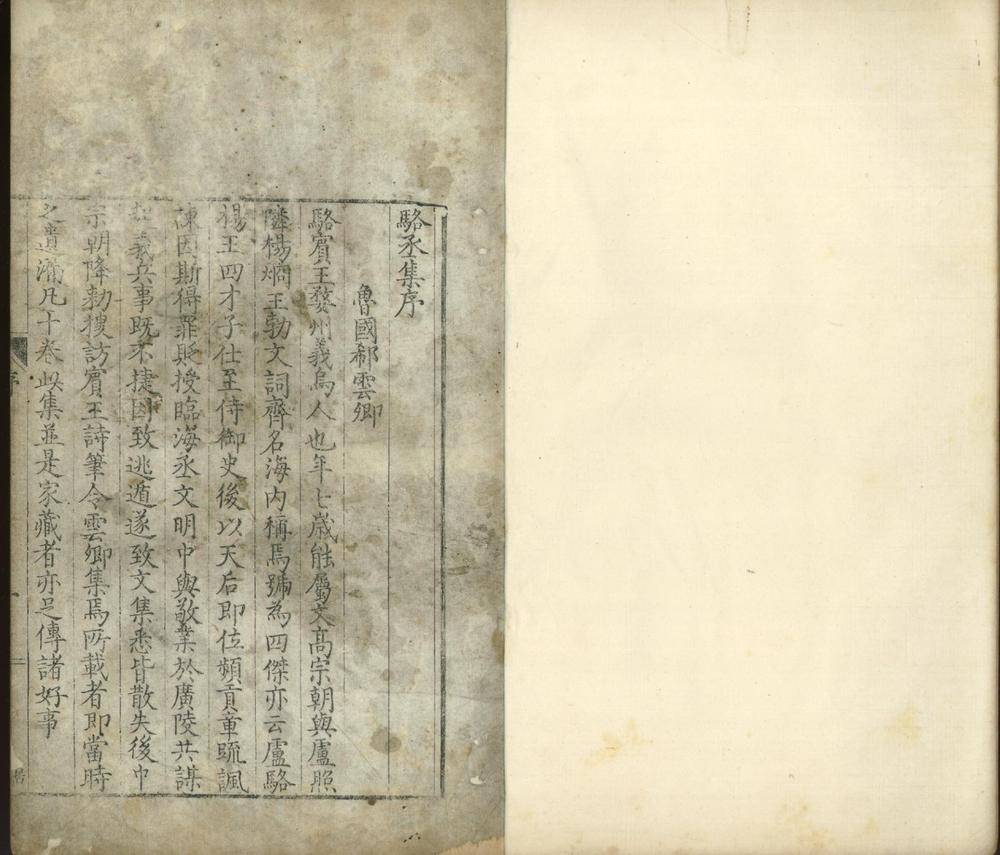 駱丞集序
魯國郗雲卿
駱賓王婺州義烏人也年七歲能屬文高宗朝與盧照
隣楊炯王勃文詞齊名海內稱焉號為四傑亦云盧駱
楊王四才子仕至侍御史後以天后即位頻貢章䟽諷
諫因斯得罪貶授臨海丞文明中與敬業於廣陵共謀
起義兵事既不捷因致逃遁遂致文集悉皆散失後中
宗朝降勑搜訪賓王詩筆令雲卿集焉所載者即當時
之遺漏凡十卷此集並是家藏者亦足傳諸好事
序